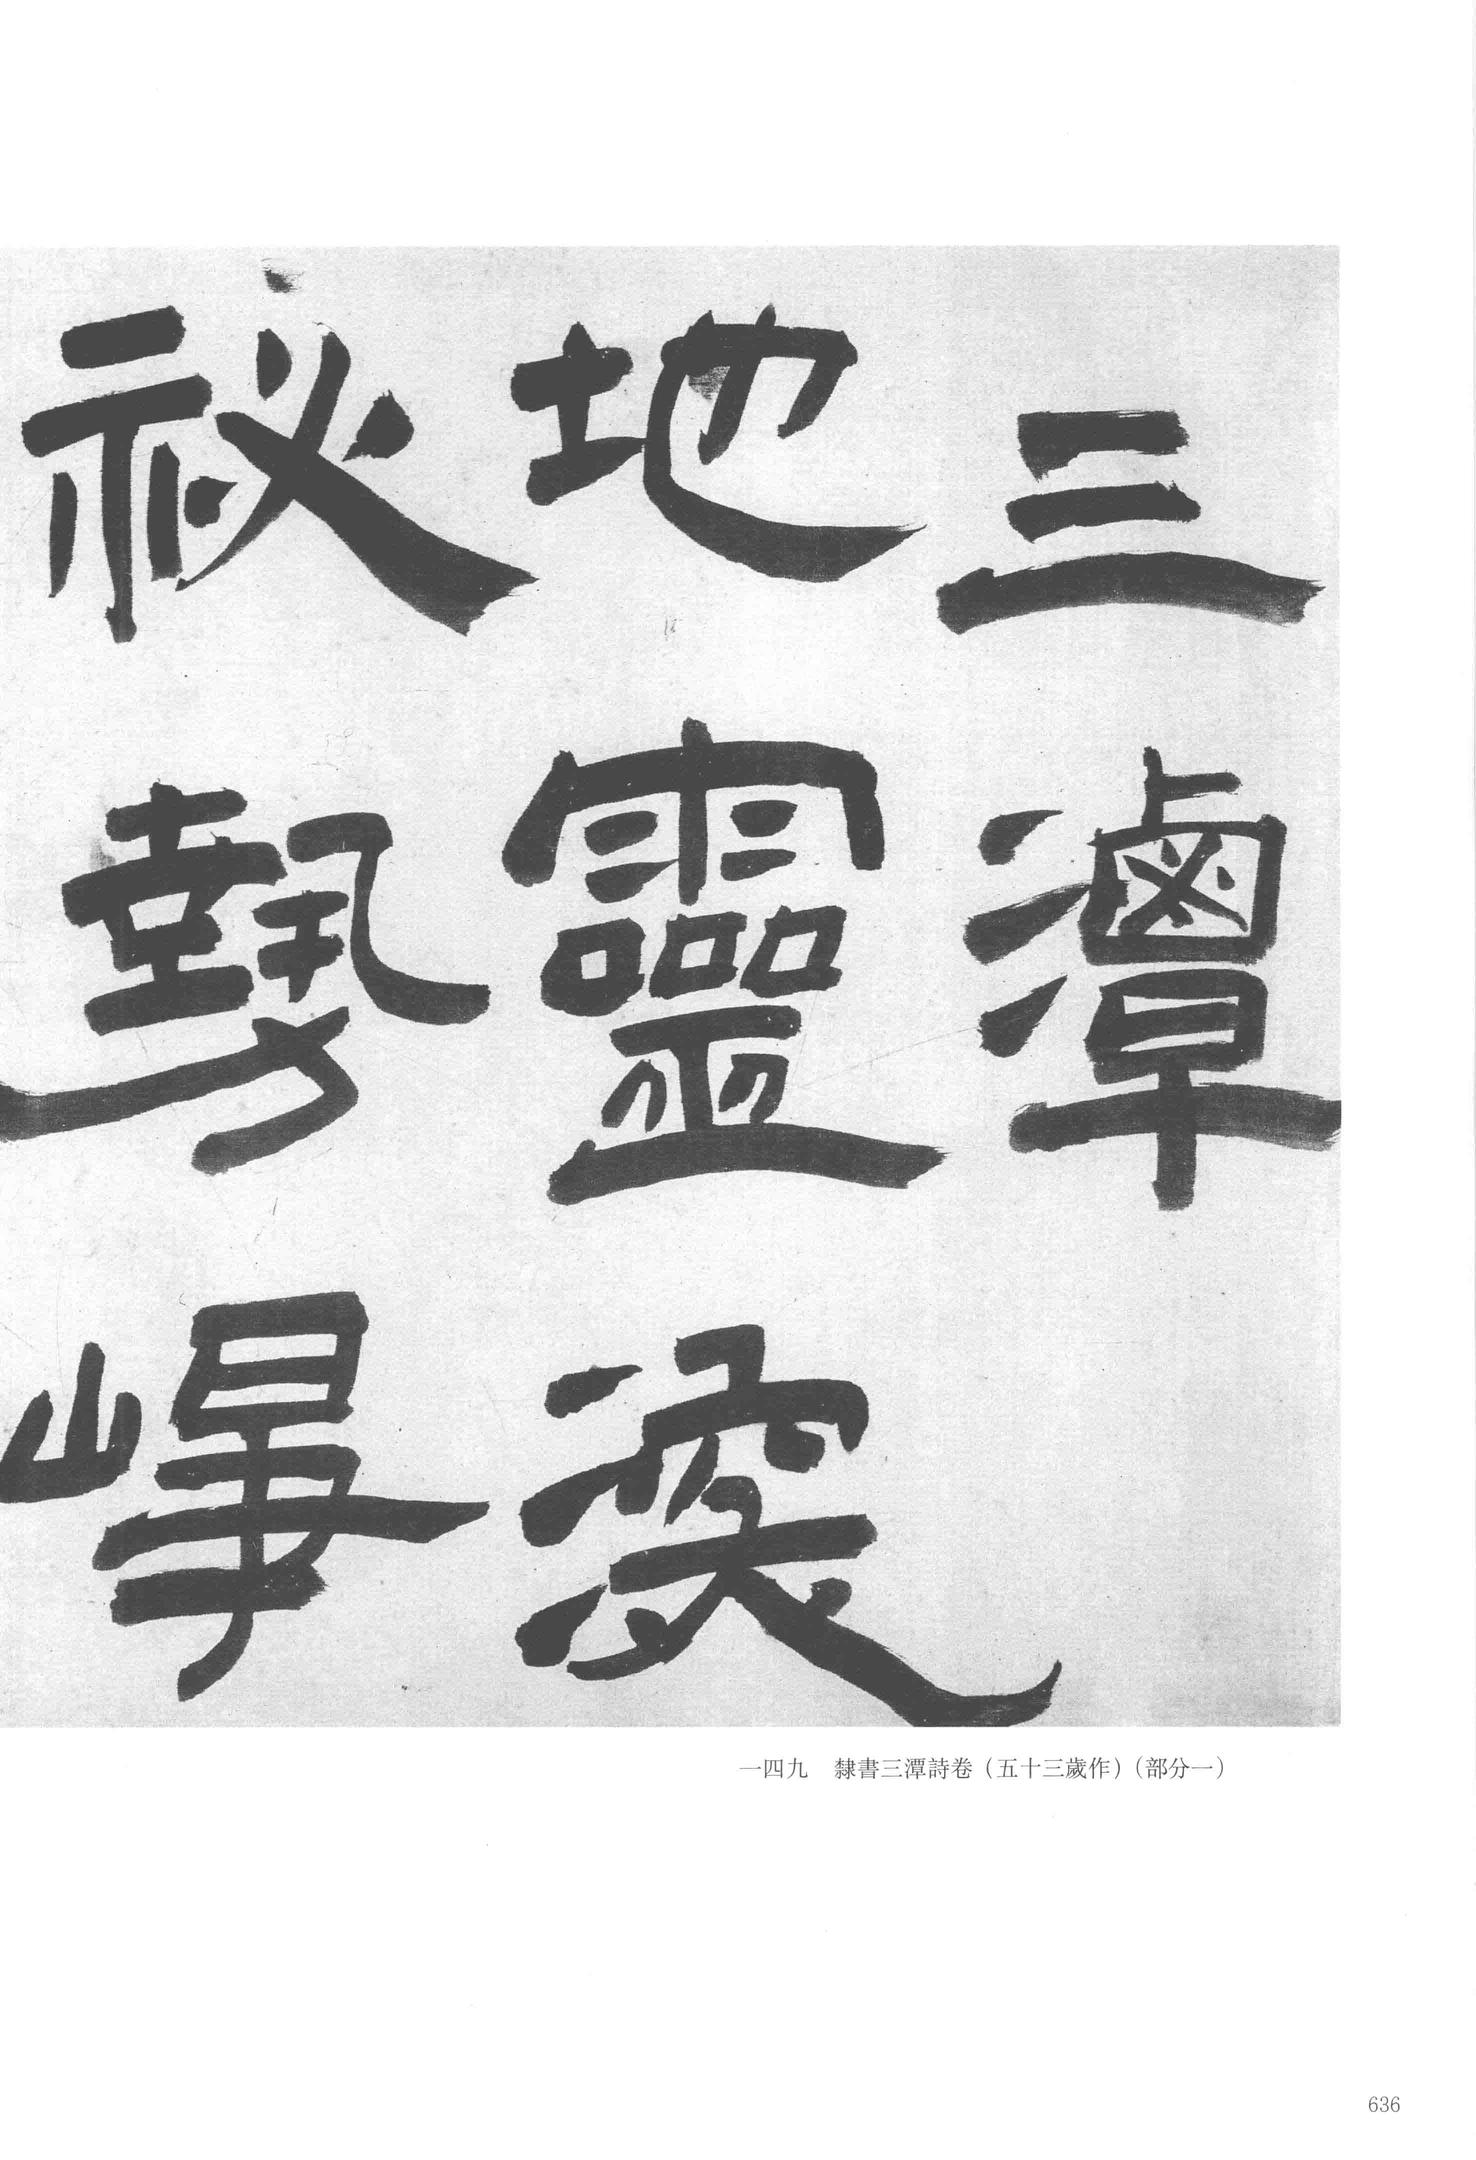 三潭
地靈深
祕勢崢
一四九　隸書三潭詩卷（五十三歲作）（部分一）
636